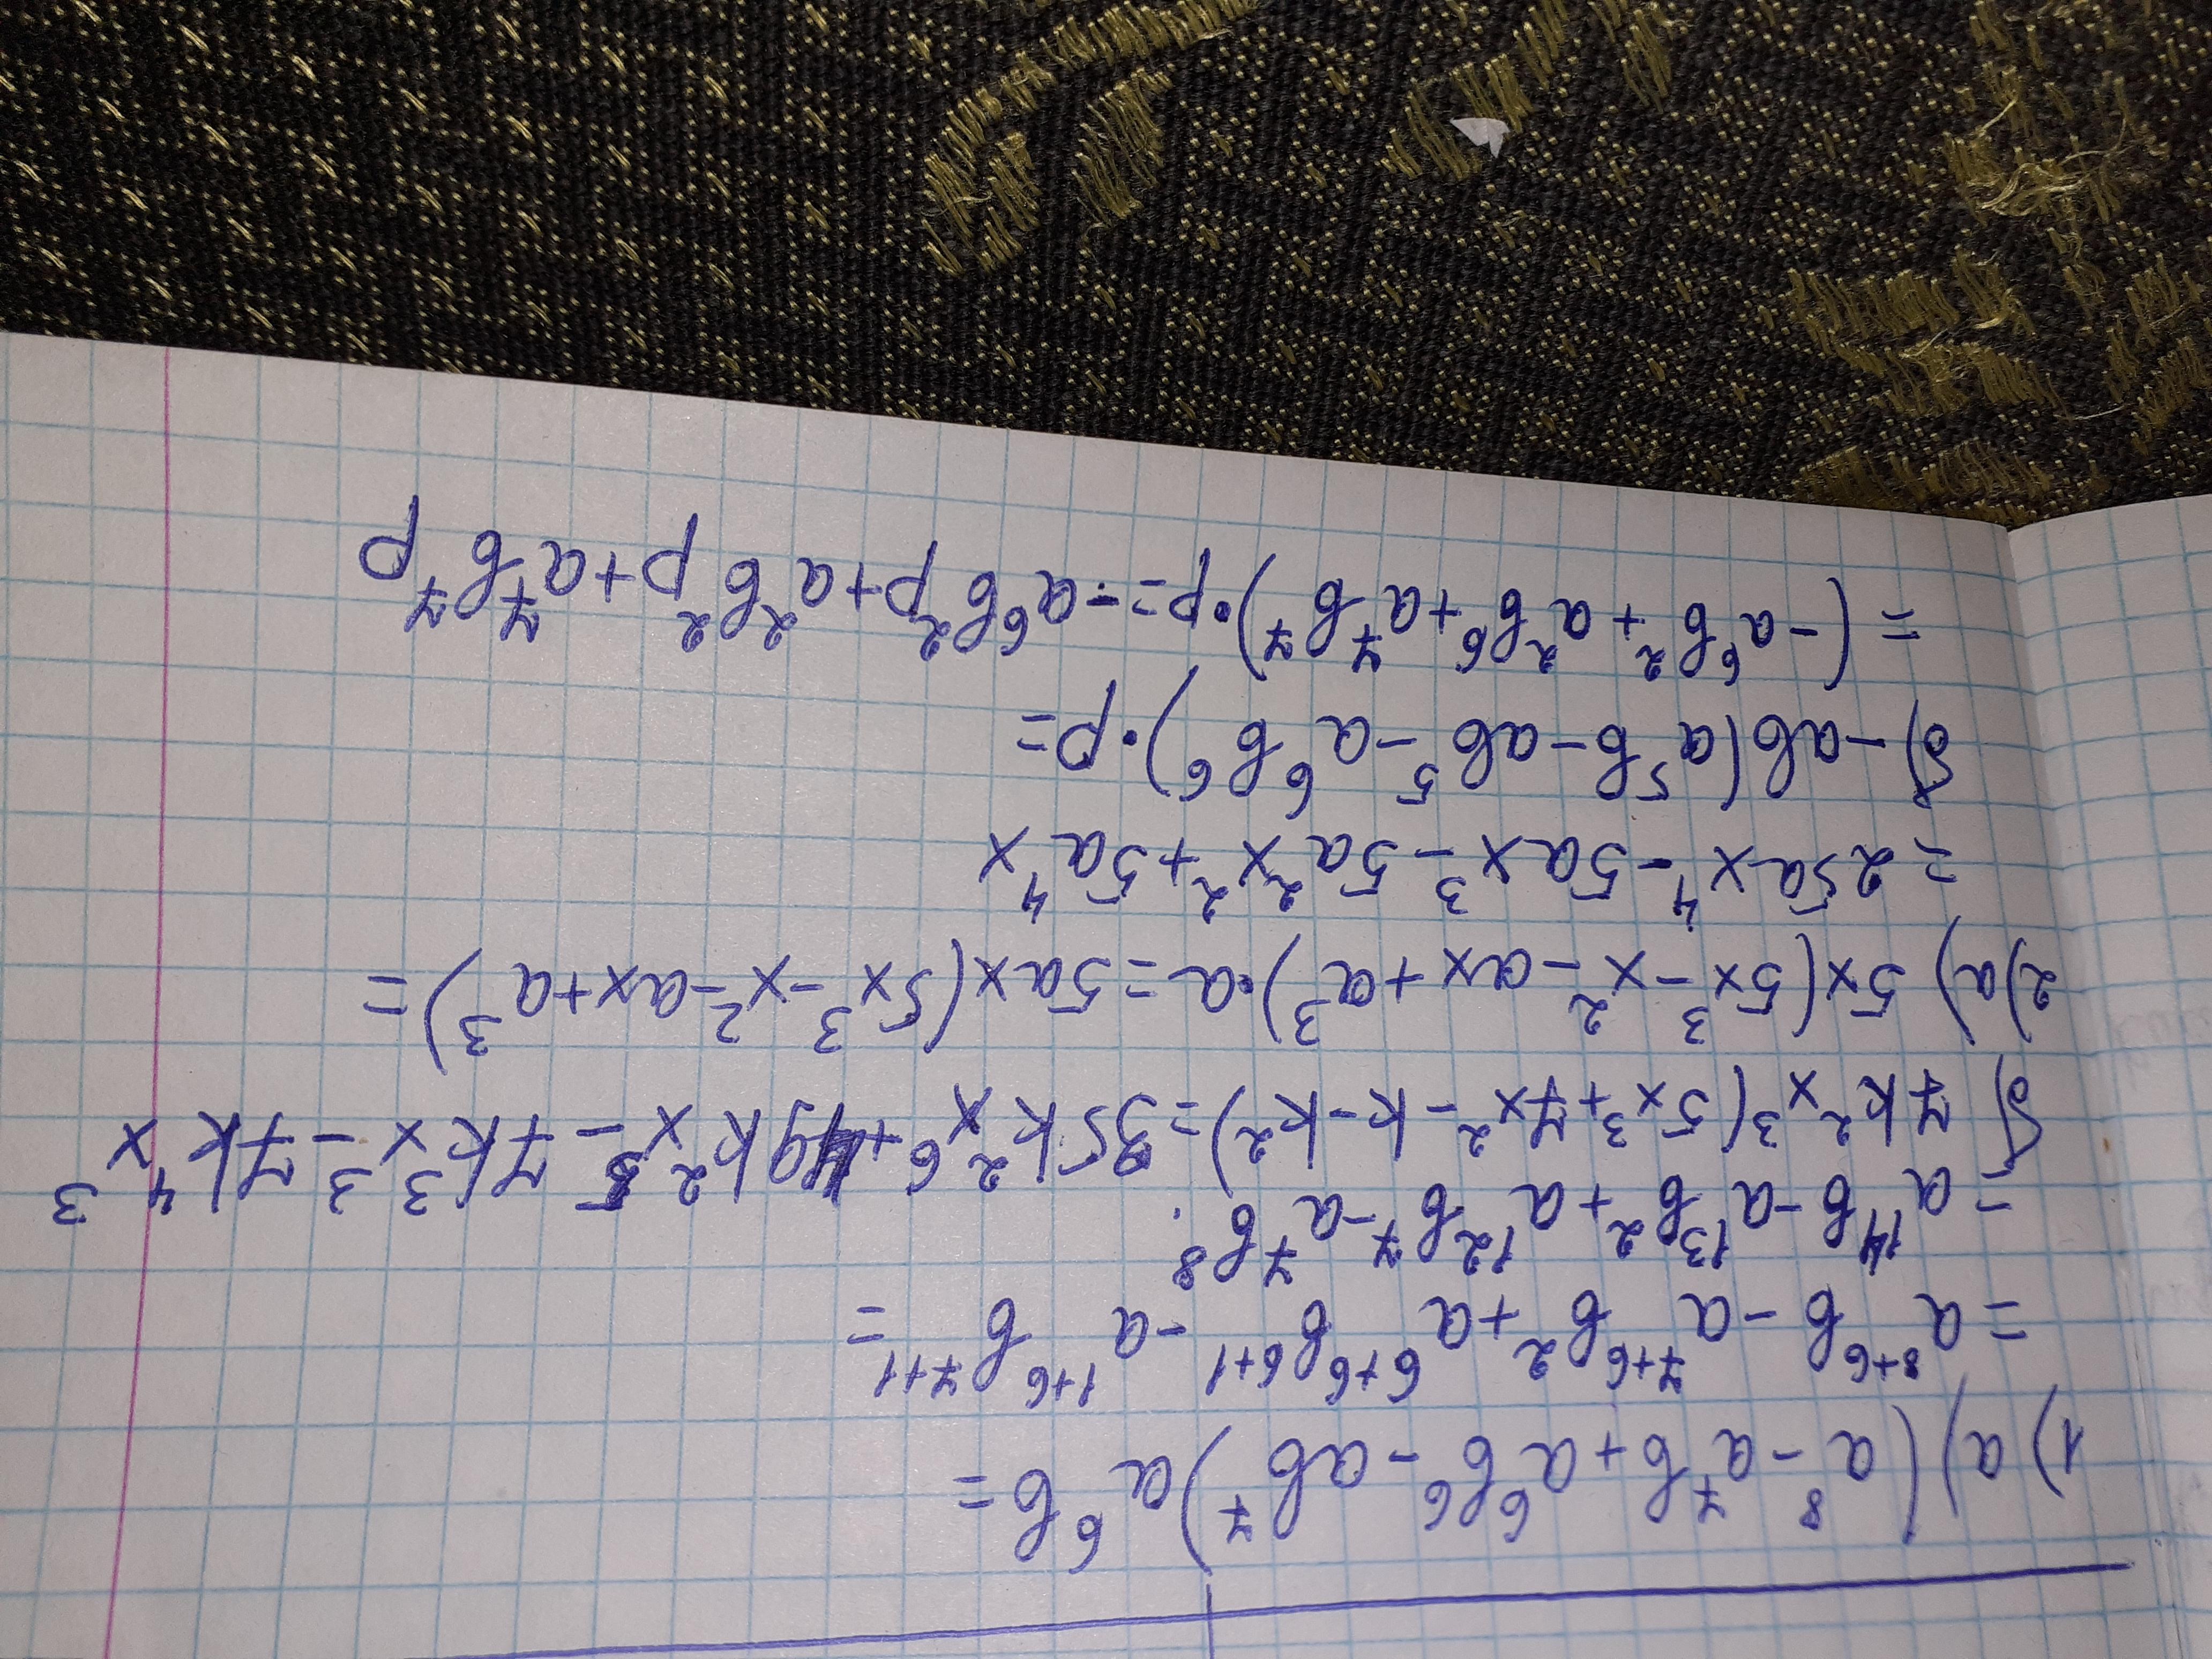 1) а) (a⁸ - a⁷b + a⁶b⁶ - ab⁷) a⁶b =
= a⁸⁺⁶b - a⁷⁺⁶b² + a⁶⁺⁶b⁶⁺¹ - a¹⁺⁶b⁷⁺¹ =
= a¹⁴b - a¹³b² + a¹²b⁷ - a⁷b⁸.
б) 7k²x³(5x³ + 7x² - k - k²) = 35k²x⁶ + 49k²x⁵ - 7k³x³ - 7k⁴x³
2) а) 5x(5x³ - x² - ax + a³)·a = 5ax(5x³ - x² - ax + a³) =
= 25ax⁴ - 5ax³ - 5a²x² + 5a⁴x
б) -ab(a⁵b - ab⁵ - a⁶b⁶)·p =
= (-a⁶b² + a²b⁶ + a⁷b⁷)·p = -a⁶b²p + a²b²p + a⁷b⁷p